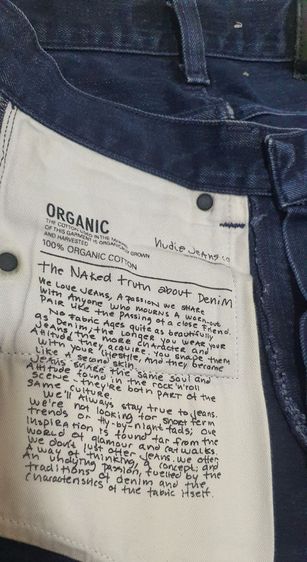 ORGANIC
THE COTTON USED IN THE MAKING
OF THIS GARMENT IS ORGANICALLY GROWN
AND HARVESTED
100% ORGANIC COTTON
Nudie Jeans co
The Naked truth about Denim
We Love Jeans, A passion we share
with Anyone who mourns A worn-out
pair Like the passing of a close friend.
No fabric Ages quite as beautifully
as Denim, the Longer you wear your
Jeans the more character and
Attitude they acquire. You shape them
with your Lifestyle, And they become
Like A second skin.
Jeans share the same soul and
Attitude found in the rock'n'roll
scene - they're both part of the
same culture.
We'll Always stay true to jeans.
We're not Looking for short term
trends or fly-by-night fads; our
inspiration is found far from the
world of glamour and catwalks.
We don't just offer Jeans. We offer
A way of thinking, A concept; and
An undying passion, fuelled by the
traditions of denim and the
characteristics of the fabric itself.